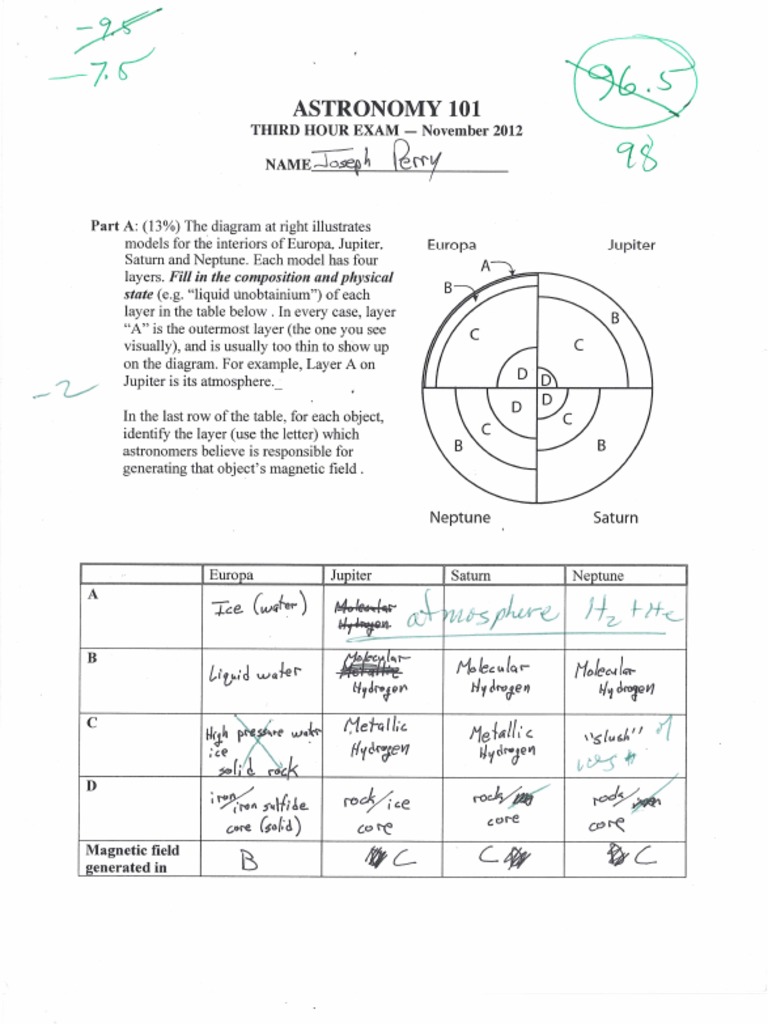 -9.5
-7.5
96.5
98
ASTRONOMY 101
THIRD HOUR EXAM — November 2012
NAME Joseph Perry
Part A: (13%) The diagram at right illustrates
models for the interiors of Europa, Jupiter,
Saturn and Neptune. Each model has four
layers. Fill in the composition and physical
state (e.g. “liquid unobtainium”) of each
layer in the table below . In every case, layer
“A” is the outermost layer (the one you see
visually), and is usually too thin to show up
on the diagram. For example, Layer A on
Jupiter is its atmosphere._
-2
In the last row of the table, for each object,
identify the layer (use the letter) which
astronomers believe is responsible for
generating that object's magnetic field .
Europa Jupiter
A
B B
C C
D D
D D
C C
B B
Neptune Saturn
Europa Jupiter Saturn Neptune
A Ice (water) Molecular Hydrogen atmosphere H2 + He
B Liquid water Molecular Metallic Hydrogen Molecular Hydrogen Molecular Hydrogen
C High pressure water ice solid rock Metallic Hydrogen Metallic Hydrogen "slush" of ices
D iron/iron sulfide core (solid) rock/ice core rock/ core rock/ core
Magnetic field generated in B C C C